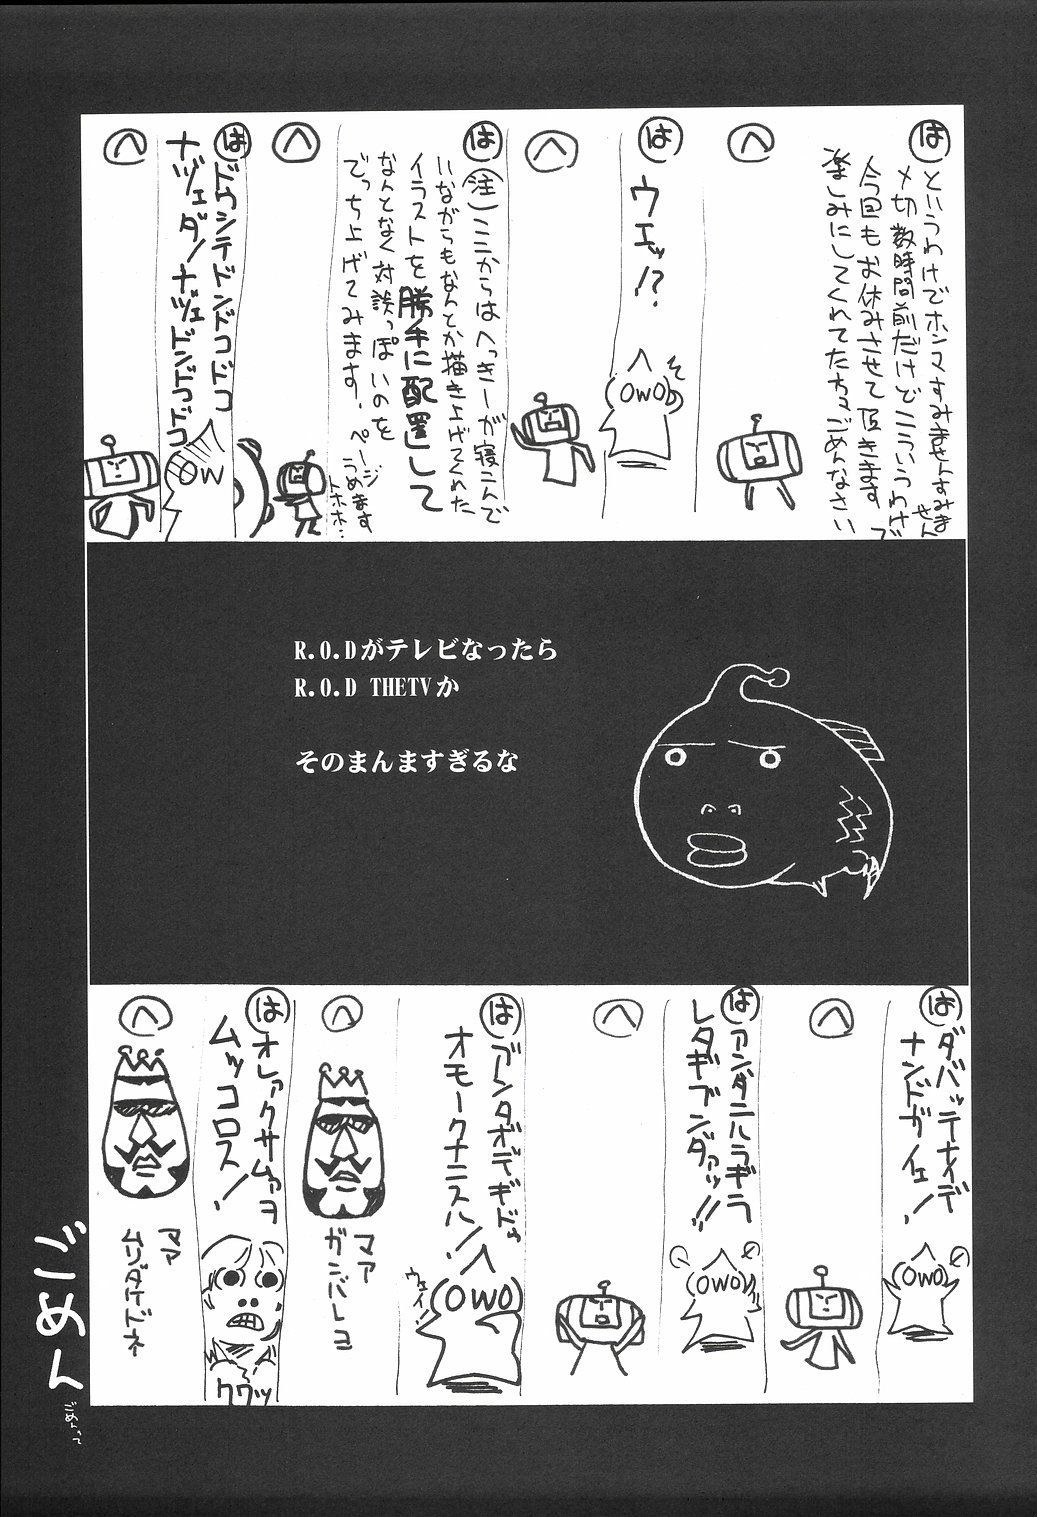 は
というわけでホンマすみませんすみません
〆切数時間前だけどこういうわけで
今回もお休みさせて頂きます
楽しみにしてくれてた方々ごめんなさい
へ
は
ウエッ!?
(OwO)
へ
は
(注)ここからはへっきーが寝こんで
いながらもなんとか描き上げてくれた
イラストを勝手に配置して
なんとなく対談っぽいのを
でっち上げてみます、
ページ
うめます
トホホ…
へ
は
ドウシテドンドコドコ
ナヅェダ!ナヅェドンドコドコ
OW
へ
R.O.Dがテレビなったら
R.O.D THETVか
そのまんますぎるな
は
ダバッテナイデ
ナンドガイェ!
(OwO)
へ
は
アンダニハラギラ
レタギブンダァッ!!
(OwO)
へ
は
アンタボデギドゥ
オモークナニスハ!
ウェイ!
(OwO)
へ
マア
ガンバレヨ
は
オレァクサムァヲ
ムッコロス!
クワッ
へ
マア
ムリダケドネ
ごめん
ごめんって